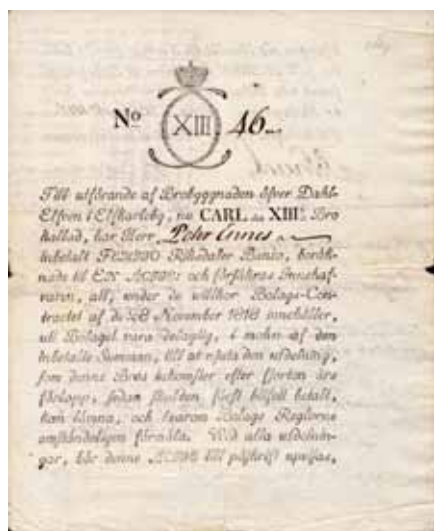 No XIII 46.
Till utförande af Brobyggnaden öfver Dahl-
Elfven i Elfkarleby, nu CARL den XIII:s Bro
kallad, har Herr Pehr Ennes
inbetalt FEMTIO Riksdaler Banco, beräk-
nade til EN ACTIE; och försäkras Innehaf-
varen, att, under de willkor Bolags-Con-
tractet af d. 28 November 1816 innehåller,
uti Bolaget vara delagtig, i mohn af den
inbetalte Summan, till att njuta den utdelning,
som denne Bros inkomster efter fjorton års
förlopp, sedan skulden först blifvit betalt,
kan lämna, och hvarom Bolags Reglorne
omständeligen förmäla. Vid alla utdelnin-
gar, bör denne ACTIE till påskrift upvisas,